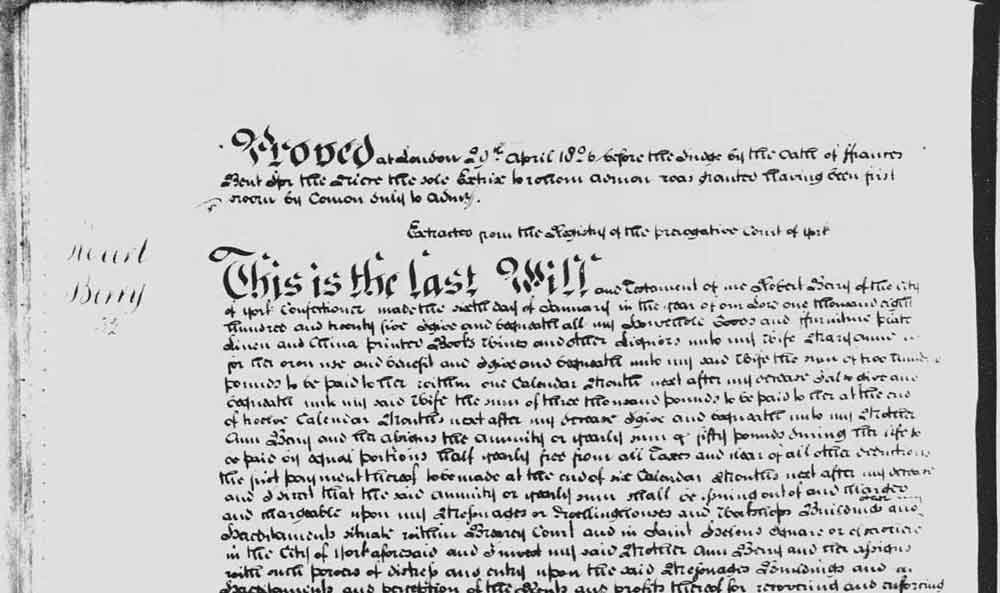 Proved at London 29th April 1826 before the Judge by the Oath of Frances
Bent the Niece the sole Extrix to whom Admon was granted having been first
sworn by Comon duly to Admr.
Extracted from the Registry of the Prerogative Court of York
Berry
52
This is the last Will and Testament of me Robert Berry of the City
of York Confectioner made the sixth day of January in the year of our Lord one thousand eight
hundred and twenty five I give and bequeath all my Household Goods and ffurniture plate
Linen and China printed Books Wines and other Liquors unto my Wife Mary Anne
for her own use and benefit and I give and bequeath unto my said Wife the sum of two hundred
pounds to be paid to her within one Calendar Month next after my decease I also give and
bequeath unto my said Wife the sum of three thousand pounds to be paid to her at the end
of twelve Calendar Months next after my decease I give and bequeath unto my Mother
Ann Berry and her assigns the annuity or yearly sum of fifty pounds during her life to
be paid by equal portions half yearly free from all taxes and clear of all other deductions
the first payment thereof to be made at the end of six Calendar Months next after my decease
and I direct that the said annuity or yearly sum shall be issuing out of and charged
and chargeable upon my Messuages or Dwellinghouses and Workshops Buildings and
Hereditaments situate within Court and in Saint Helens Square or elsewhere
in the City of York aforesaid and I invest my said Mother Ann Berry and her assigns
with such powers of distress and entry upon the said Messuages Buildings and
Hereditaments and perception of the Rents and profits thereof for recovering and enforcing